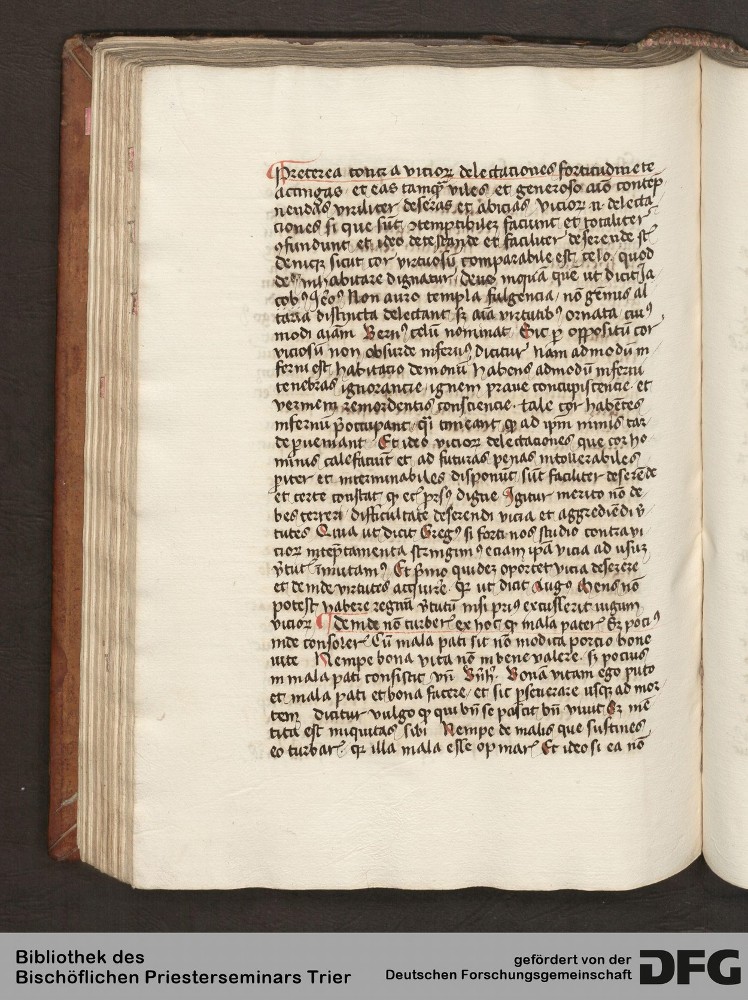 Preterea contra vicioꝝ delectaciones fortitudinē te
accingas et eas tamqͣ viles et generoso aīo contēp
nendas viriliter deseras et abicias vicioꝝ n̄ delecta
ciones si que sūt ꝯtemptibilez faciunt et totaliter
ꝯfundunt et ideo detestande et faciliter deserende sūt
Deniqꝫ sicut cor virtuosū comparabile est celo quod
deꝰ inhabitare dignatur Deus inquā que ut dicit Ja
cobꝰ Non auro templa fulgencia nō gēmis al
taria distincta delectant sꝫ aīa virtutibꝰ ornata cuiꝰ
modi aīam Bernꝰ celū nominat Sic ꝑ oppositū cor
viciosū non obsurde inferiꝰ dicitur nam admodū in
ferni est habitacio demonū habens admodū inferni
tenebras ignorancie ignem praue concupiscencie et
vermem remordentis consciencie tale cor habētes
infernū p̄occupant qͥ timeant qꝫ ad ip̄m nimis tar
de ꝑueniant Et ideo vicioꝝ delectaciones que cor ho
minis calefaciūt et ad futuras penas intollerabiles
ꝑiter et interminabiles disponūt sūt faciliter deserēde
et certe constat qꝫ et digne Igitur merito nō de
bes terreri difficultate deserendi vicia et aggrediēdi v̓
tutes Quia ut dicit Gregꝰ si forti nos studio contra vi
cioꝝ intēptamenta stringimꝰ eciam ip̄a vicia ad usuꝫ
v̓tut īmutamꝰ Et p̓mo quidez oportet vicia deserere
et deinde virtutes acquirere qꝛ ut dicit Augꝰ Mens nō
potest habere regnū v̓tutū nisi priꝰ excusserit iugum
vicioꝝ Deinde nō turber̄ ex hoc qꝫ mala pater̄ Sꝫ pociꝰ
inde consoler̄ Cū mala pati sit nō modica porcio bone
vite Nempe bona vita nō in bene valere sꝫ pocius
in mala pati consistit vn̄ Bona vitam ego puto
et mala pati et bona facere et sic ꝑseuerare usqꝫ ad mor
tem dicitur vulgo qꝫ qui bn̄ se pascit bn̄ viuit Sꝫ mē
tita est iniquitas sibi Nempe de malis que sustines
eo turbar̄ qꝛ illa mala esse opinar̄ Et ideo si ea nō
Bibliothek des
Bischöflichen Priesterseminars Trier
gefördert von der
Deutschen Forschungsgemeinschaft
DFG